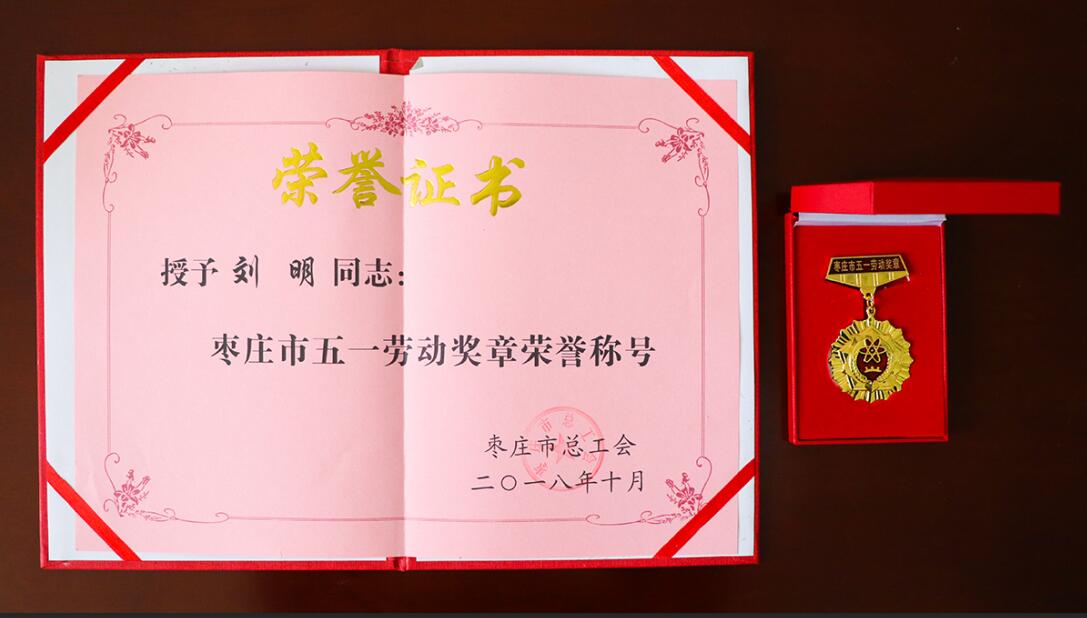 荣誉证书
授予 刘 明 同志：
枣庄市五一劳动奖章荣誉称号
枣庄市总工会
二〇一八年十月
枣庄市五一劳动奖章
枣庄市总工会